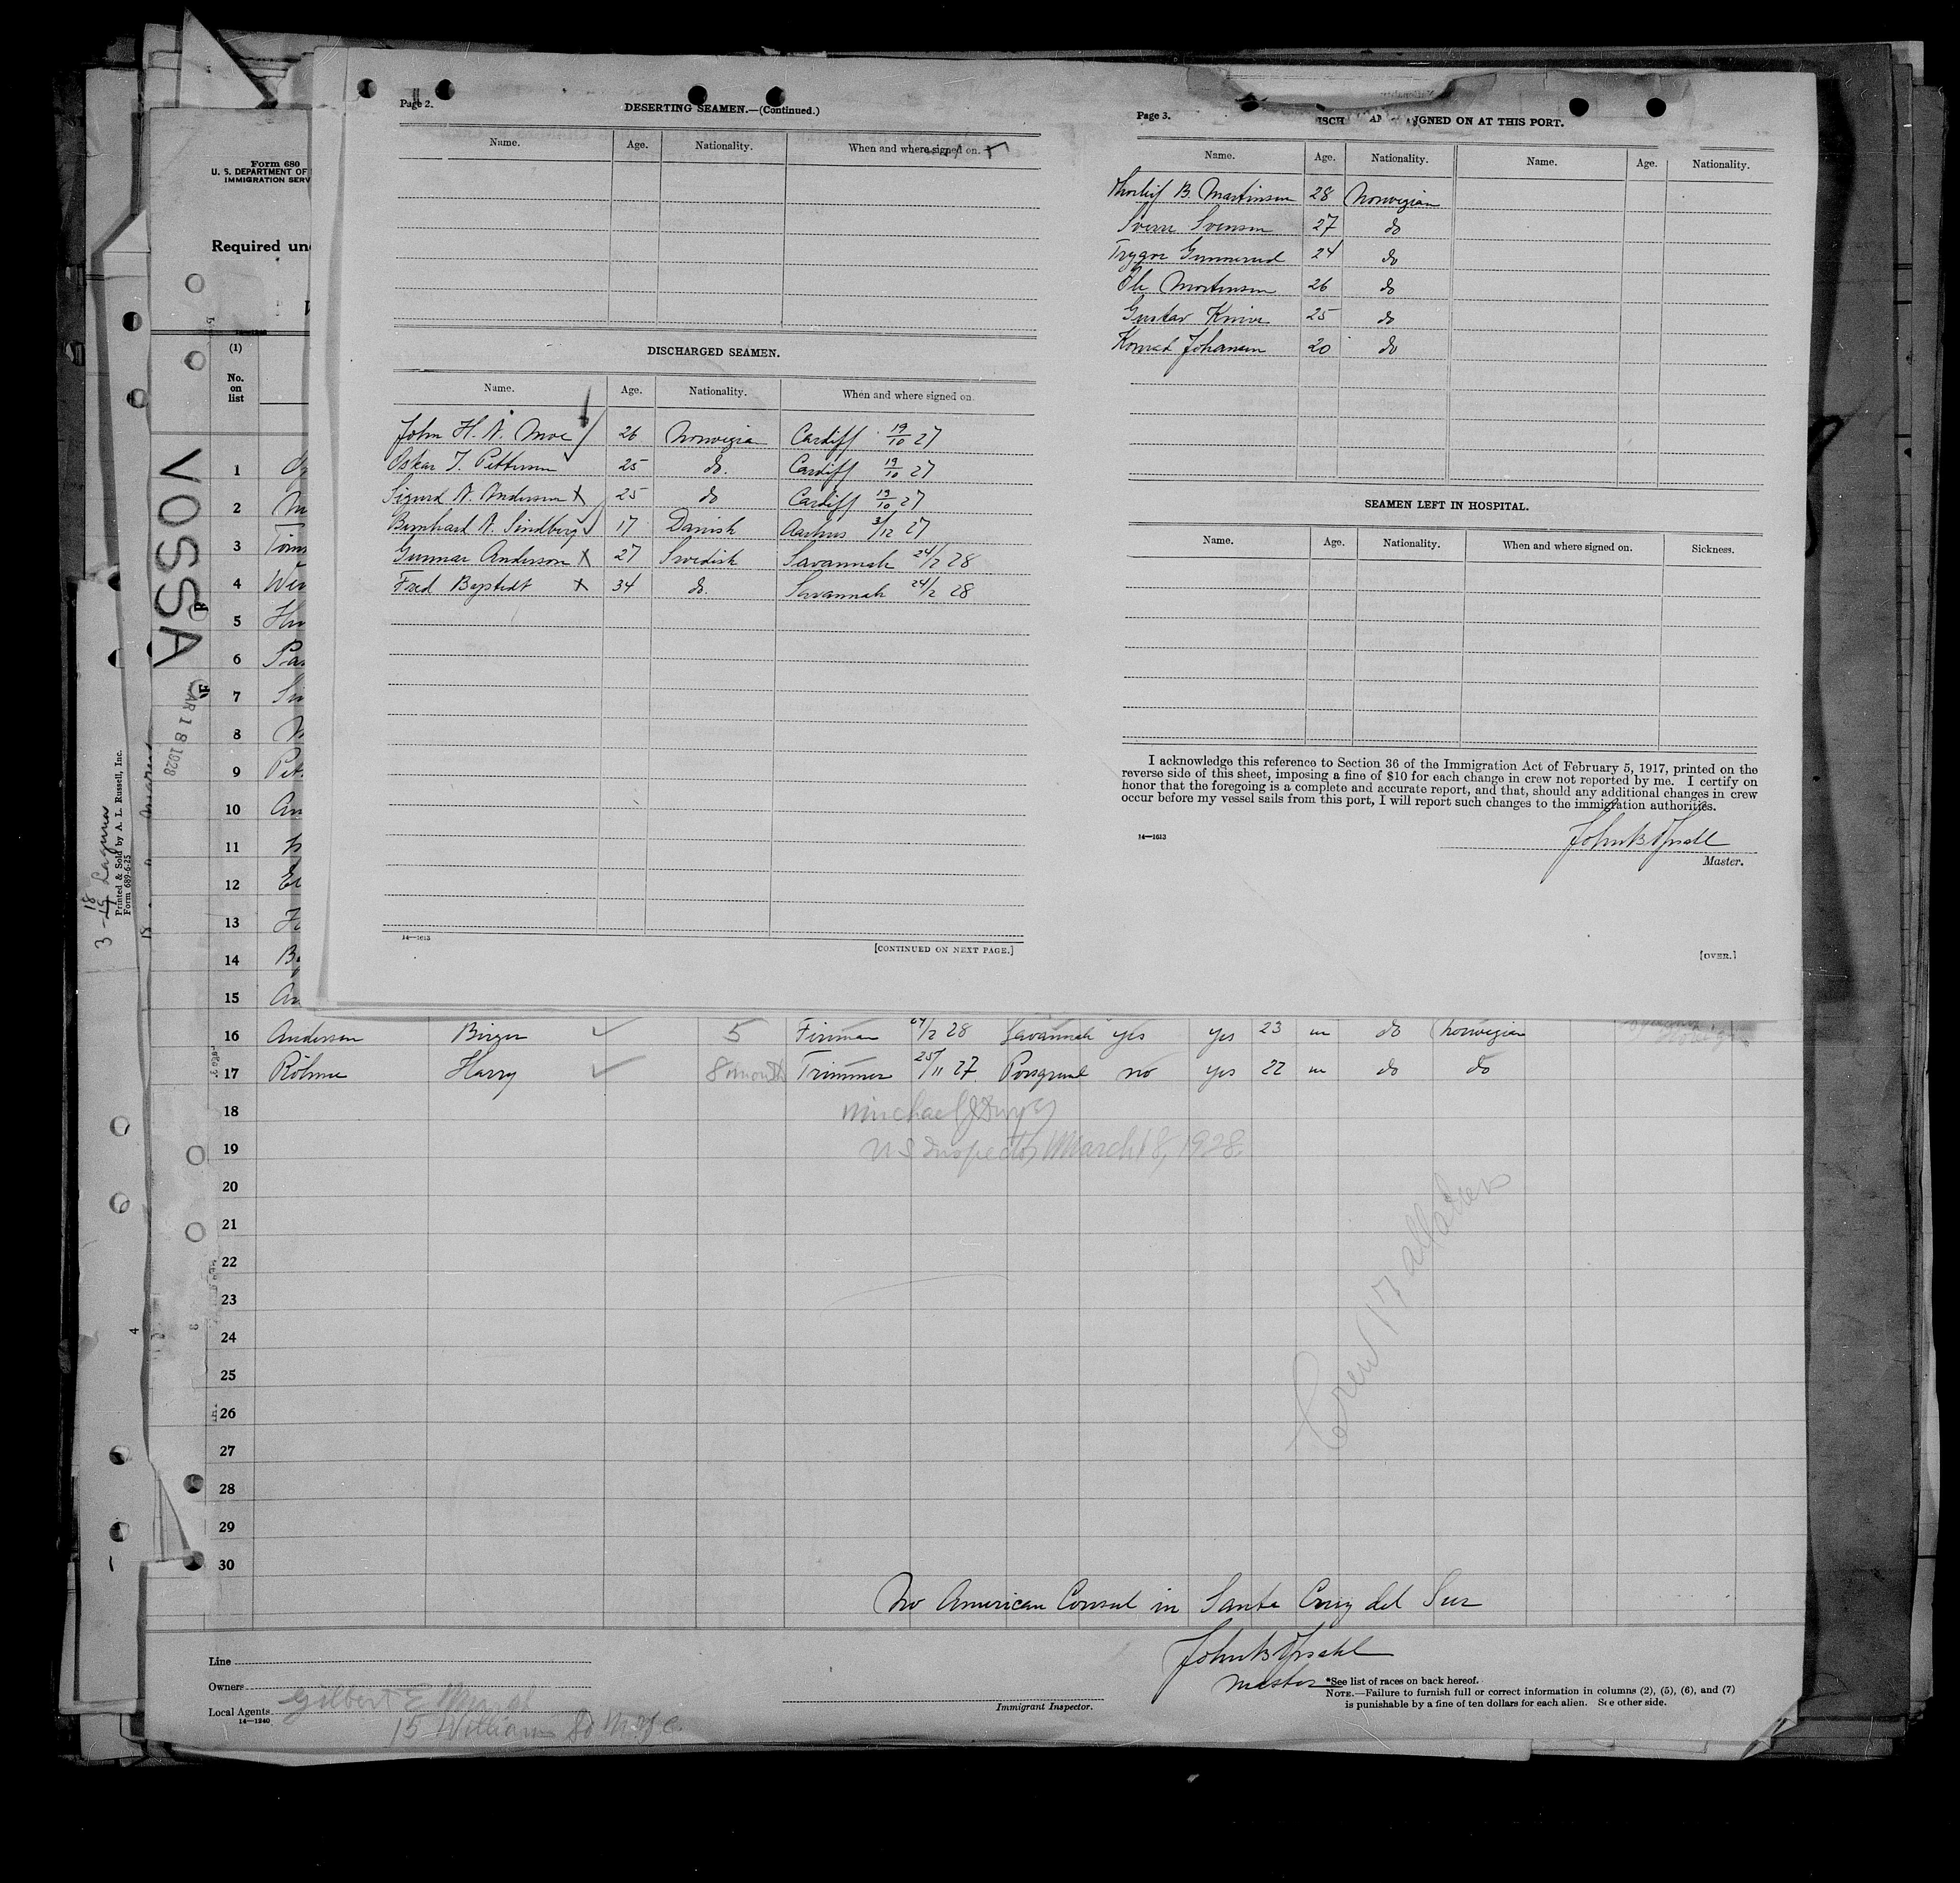 Page 2.
DESERTING SEAMEN.—(Continued.)
Name. Age. Nationality. When and where signed on.
DISCHARGED SEAMEN.
Name. Age. Nationality. When and where signed on.
John H. A. Moe 26 Norwegia Cardiff 19/10 27
Oskar T. Pettersen 25 do. Cardiff 19/10 27
Sigurd A. Andersen X 25 do Cardiff 19/10 27
Bernhard A. Sindberg 17 Danish Aarhus 3/12 27
Gunnar Anderson X 27 Swedish Savannah 24/2 28
Fred Bystedt X 34 do. Savannah 24/2 28
14—1613
[CONTINUED ON NEXT PAGE.]
Page 3.
ISCH AN IGNED ON AT THIS PORT.
Name. Age. Nationality. Name. Age. Nationality.
Thorleif B. Martinsen 28 Norwegian
Sverre Svensen 27 do
Trygve Gunnerud 24 do
Ole Mortensen 26 do
Gustav 25 do
Konrad Johansen 20 do
SEAMEN LEFT IN HOSPITAL.
Name. Age. Nationality. When and where signed on. Sickness.
I acknowledge this reference to Section 36 of the Immigration Act of February 5, 1917, printed on the
reverse side of this sheet, imposing a fine of $10 for each change in crew not reported by me. I certify on
honor that the foregoing is a complete and accurate report, and that, should any additional changes in crew
occur before my vessel sails from this port, I will report such changes to the immigration authorities.
14—1613
Master.
[OVER.]
Form 680
U. S. DEPARTMENT OF
IMMIGRATION SERV
Required un
(1)
No.
on
list
VOSSA
MAR 18 1928
3-18 Laguna
Printed & Sold by A. L. Russell, Inc.
Form 689-6-25
1
2
3
4
5
6
7
8
9
10
11
12
13
14
15
16 Andersen Birger 5 Fireman 24/2 28 Savannah yes yes 23 m do Norwegian
17 Röhme Harry 8 month Trimmer 25/11 27 Porsgrund no yes 22 m do do
18
19 U S Inspector March 18, 1928.
20
21
22
23
24
25
26
27
28
29
30
Crew 17 all
No American Consul in Santa Cruz del Sur
Master
Line
Owners
Local Agents Gilbert E
14—1240
15 William St N.Y.C.
Immigrant Inspector.
*See list of races on back hereof.
NOTE.—Failure to furnish full or correct information in columns (2), (5), (6), and (7)
is punishable by a fine of ten dollars for each alien. See other side.